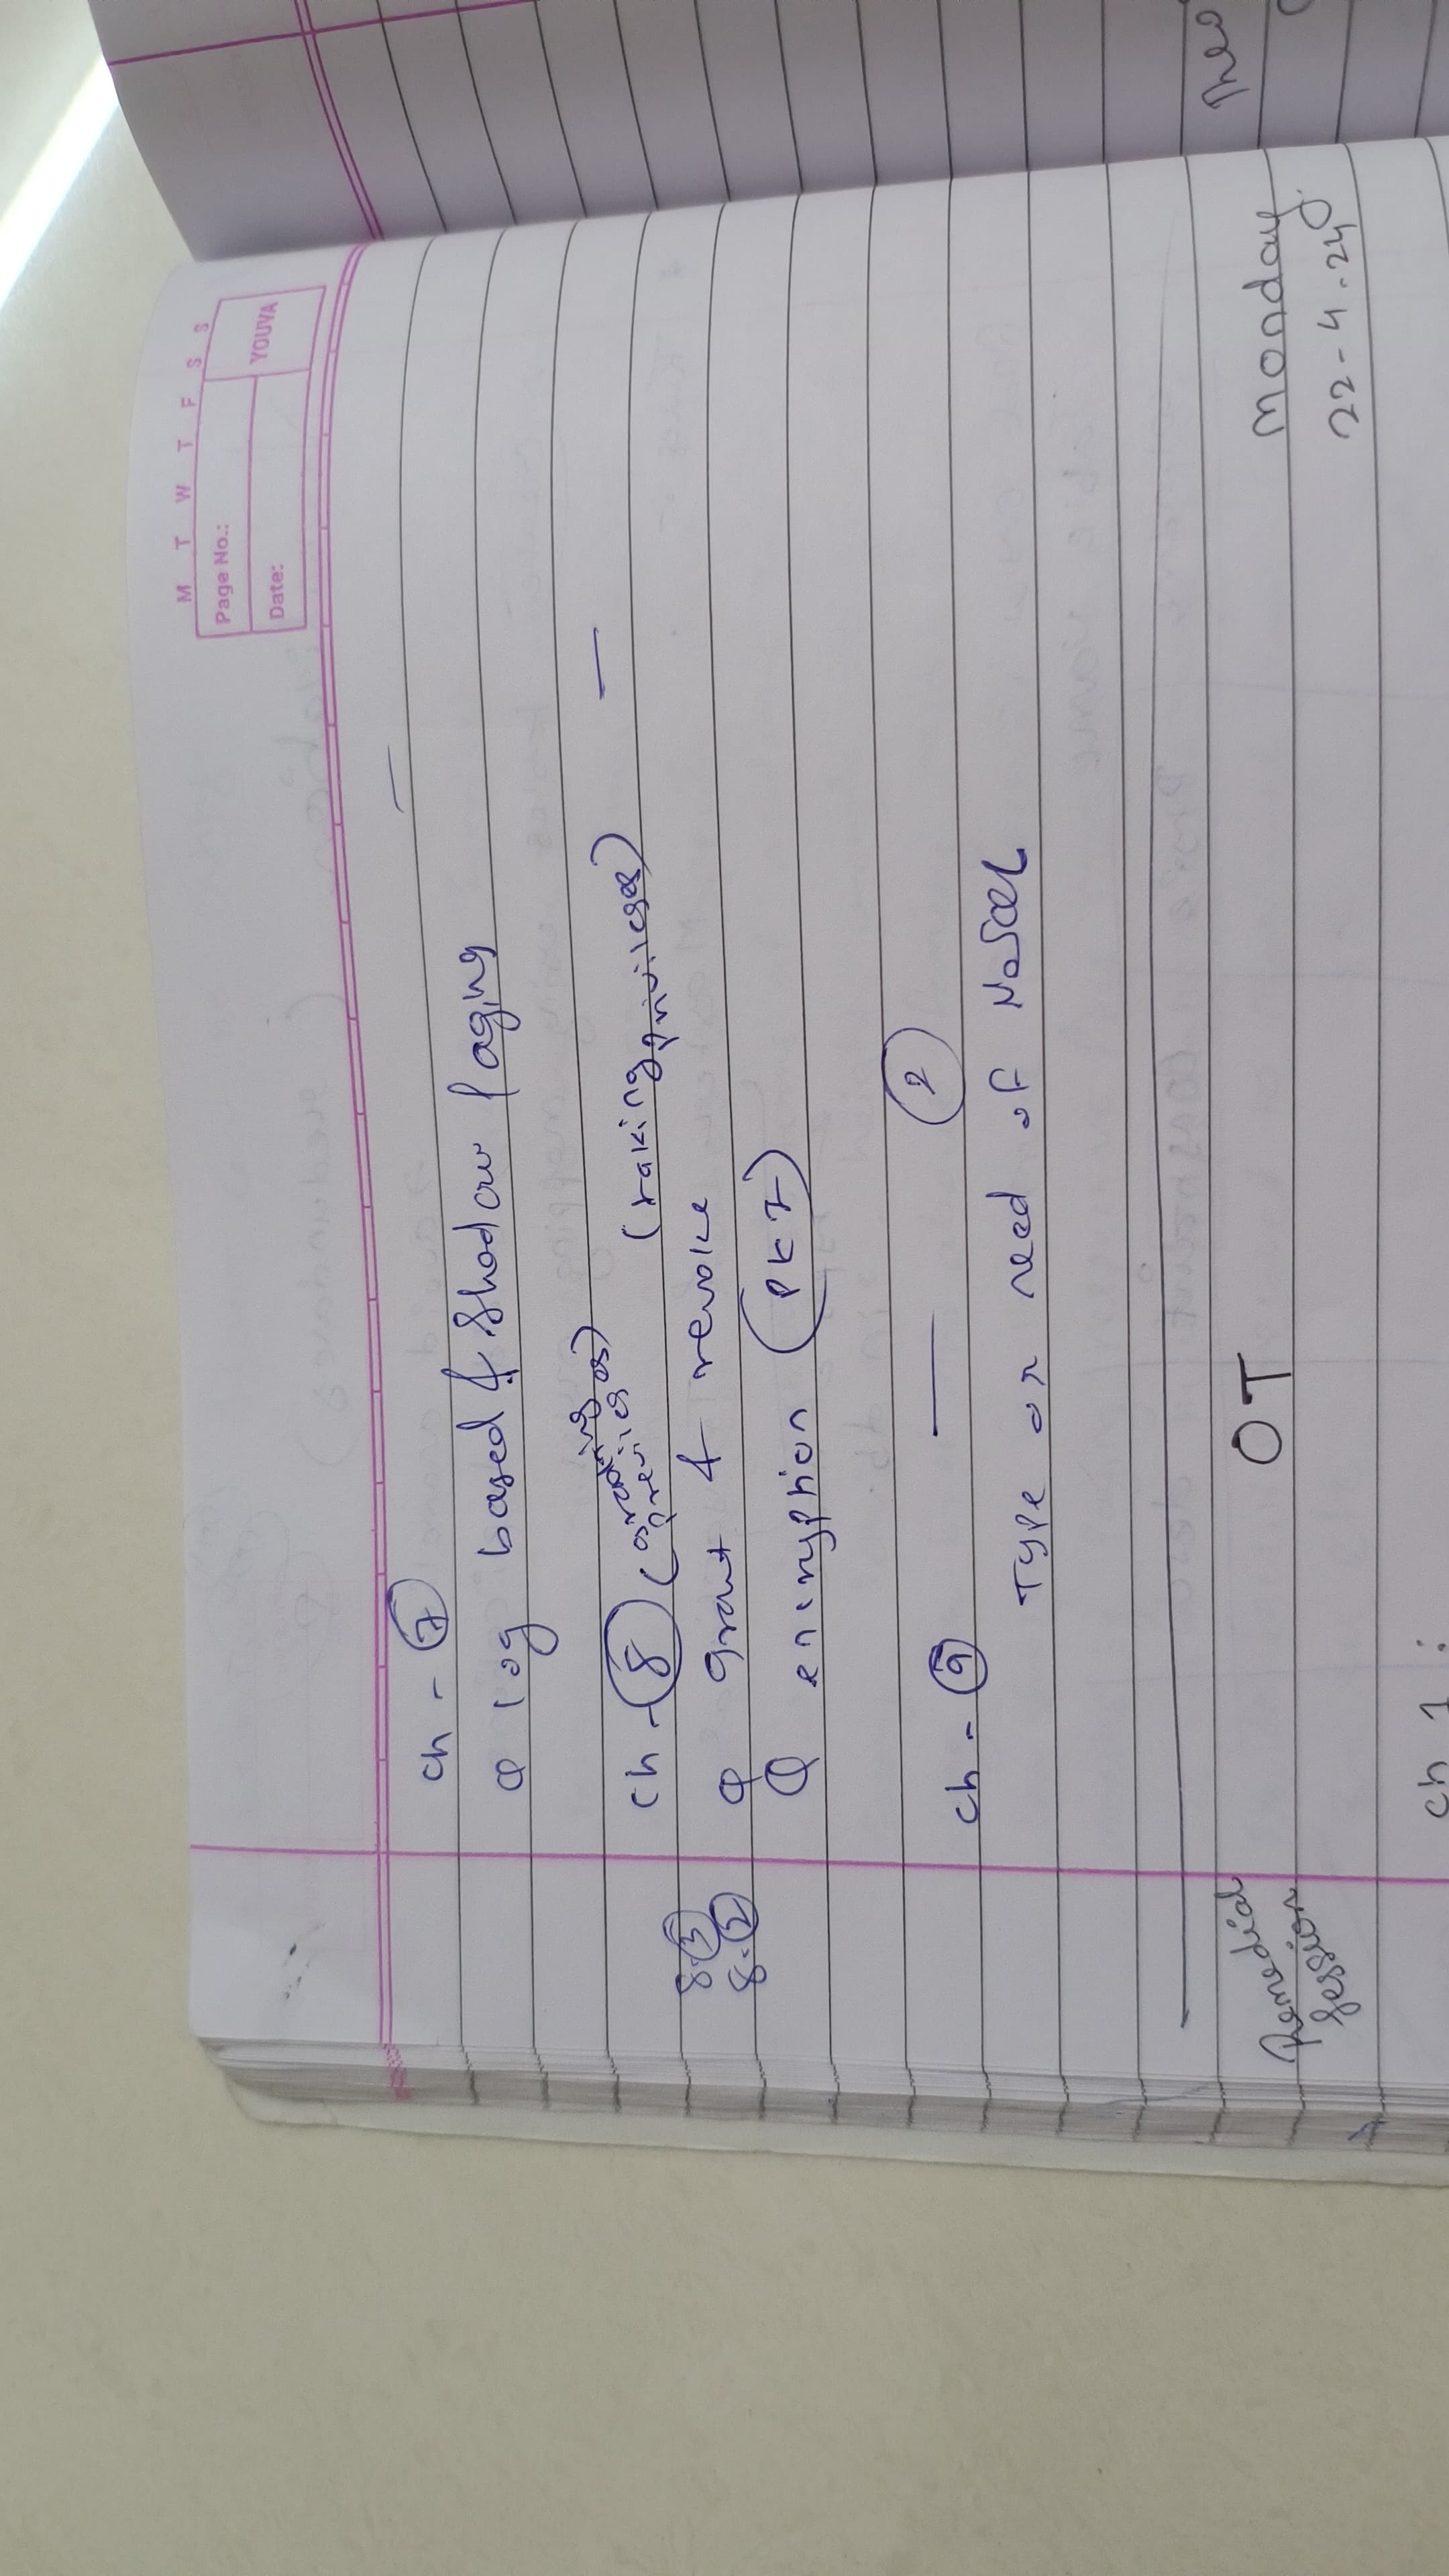 M T W T F S S
Page No.:
Date:
YOUVA
ch - 7
Q log based & Shadow Paging
ch - 8 (granting previleges) (taking privileges)
8.3 Q grant & revoke
8.2 Q encryption (PKI)
ch - 9 — 2
Type or need of NoSQL
Remedial Session
OT
Monday
22-4-24
Theo
ch 1 :